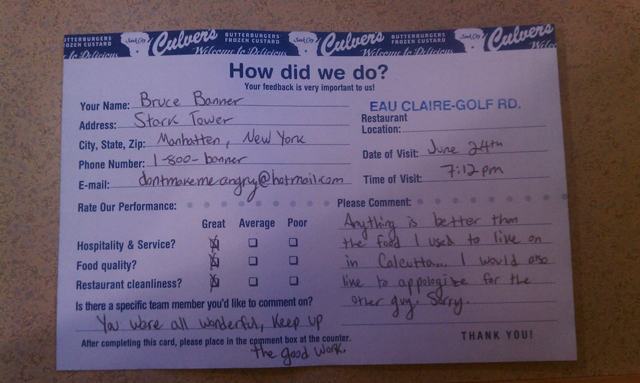 BUTTERBURGERS FROZEN CUSTARD Culver's BUTTERBURGERS FROZEN CUSTARD Culver's BUTTERBURGERS FROZEN CUSTARD Culver's
Welcome to Delicious
How did we do?
Your feedback is very important to us!
Your Name: Bruce Banner
Address: Stark Tower
City, State, Zip: Manhatten, New York
Phone Number: 1-800-banner
E-mail: dontmakemeangry@hotmail.com
EAU CLAIRE-GOLF RD.
Restaurant
Location:
Date of Visit: June 24th
Time of Visit: 7:12 pm
Rate Our Performance:
Great Average Poor
Hospitality & Service?
Food quality?
Restaurant cleanliness?
Is there a specific team member you'd like to comment on?
You were all wonderful, Keep up
the good work.
After completing this card, please place in the comment box at the counter.
Please Comment:
Anything is better than
the food I used to live on
in Calcutta... I would also
like to appologize for the
other guy. Sorry.
THANK YOU!